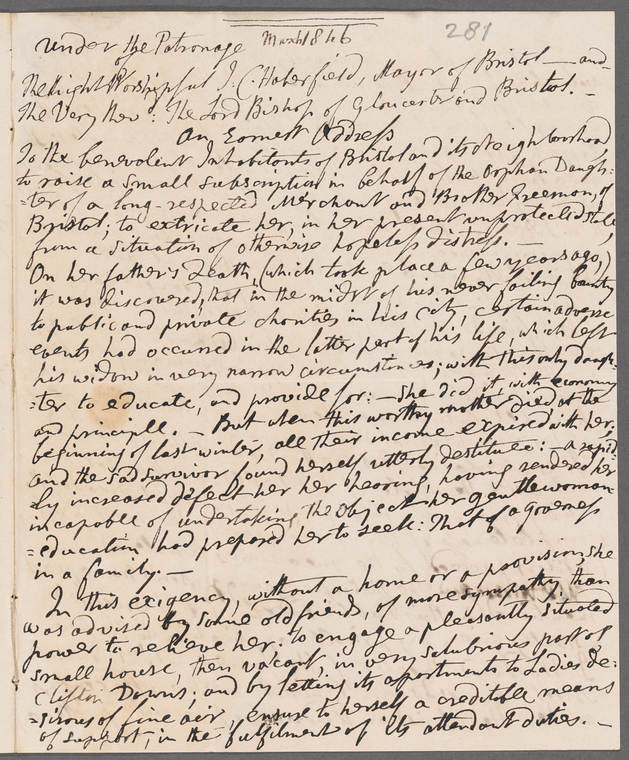 281
March 1846
Under the Patronage
of
The Right Worshipful J. C. Haberfield, Mayor of Bristol — and
The Very Revd: The Lord Bishop of Gloucester and Bristol. —
An Earnest Address
To the benevolent Inhabitants of Bristol and its Neighbourhood
to raise a small subscription in behalf of the Orphan Daugh:
=ter of a long-respected Merchant and Brother Freeman, of
Bristol; to extricate her, in her present unprotected state,
from a situation of otherwise hopeless distress. —
On her father's death, (which took place a few years ago,)
it was discovered, that in the midst of his never failing bounty
to public and private charities in his city, certain adverse
events had occurred in the latter part of his life, which left
his widow in very narrow circumstances, with this only daugh:
=ter to educate, and provide for: — She did it with economy
and principle. — But when this worthy mother died at the
beginning of last winter, all their income expired with her;
and the sad survivor found herself utterly destitute: — a rapid
ly increased defect her her hearing, having rendered her
incapable of undertaking the object her gentlewoman
=education, had prepared her to seek: That of a governess
in a family. —
In this exigency, without a home or a provision, she
was advised by some old friends, of more sympathy than
power to relieve her; to engage a pleasantly situated
small house, then vacant, in very salubrious part of
Clifton Downs; and by letting its apartments to Ladies de:
=sirous of fine air, ensure to herself a creditable means
of support, in the fulfilment of its attendant duties. —